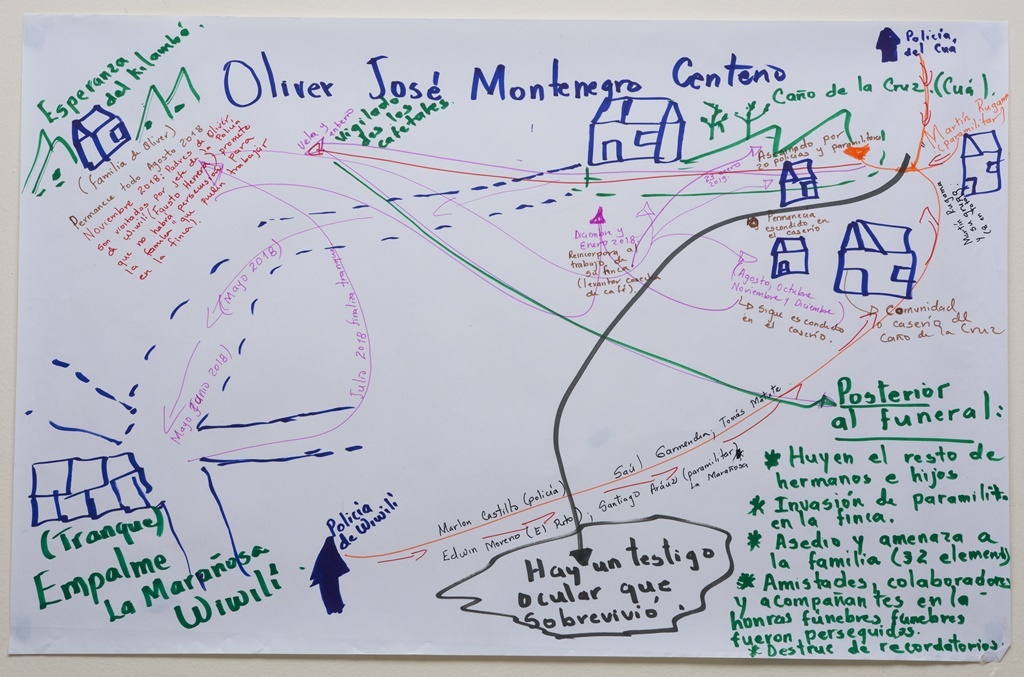 Oliver José Montenegro Centeno
Esperanza
del Kilambé.
(Familia de Oliver)
Permanece todo Agosto 2018
Noviembre 2018. Padres de Oliver,
son visitados por jefe de la Policía
de Wiwilí (Fausto Herrera) prometo
que no habrá persecusión para
la familia que pueden trabajar
en la finca)
Vela y
entierro
Vigilado
des los
cafetales.
Policía
del Cuá
Caño de la Cruz (Cuá).
Martín Rugama
(paramilitar)
Martín Rugama
y su grupo
Asesinado por
20 policías y paramilitares
2019.
Permanecía
escondido en
el caserío
Diciembre y
Enero 2018
Reincorpora al
trabajo de
su finca
(levantar cosecha
de café).
(Agosto, Octubre
Noviembre y Diciembre)
Sigue escondido
en el caserío.
Comunidad
o caserío del
Caño de la Cruz
(Mayo 2018)
Mayo Junio 2018)
Julio 2018 finaliza tranque
(Tranque)
Empalme
La Marañosa
Wiwilí
Policía
de Wiwilí
Marlon Castillo (policía) Saúl Garmendia; Tomás Matute
Edwin Moreno (El Pato); Santiago Aráuz (paramilitar)
La Marañosa
Hay un testigo
ocular que
Sobrevivió.
Posterior
al funeral:
* Huyen el resto de
hermanos e hijos
* Invasión de paramilita
en la finca.
* Asedio y amenaza a
la familia (32 element)
* Amistades, colaboradores
y acompañantes en la
honras fúnebres fúnebres
fueron perseguidas.
* Destruc de recordatorios.